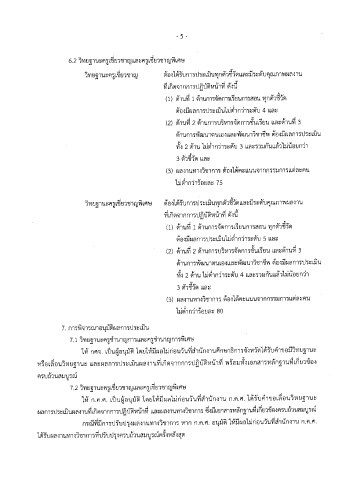 - 5 -
6.2 วิทยฐานะครูเชี่ยวชาญและครูเชี่ยวชาญพิเศษ
วิทยฐานะครูเชี่ยวชาญ ต้องได้รับการประเมินทุกตัวชี้วัดและมีระดับคุณภาพผลงาน
ที่เกิดจากการปฏิบัติหน้าที่ ดังนี้
(1) ด้านที่ 1 ด้านการจัดการเรียนการสอน ทุกตัวชี้วัด
ต้องมีผลการประเมินไม่ต่ำกว่าระดับ 4 และ
(2) ด้านที่ 2 ด้านการบริหารจัดการชั้นเรียน และด้านที่ 3
ด้านการพัฒนาตนเองและพัฒนาวิชาชีพ ต้องมีผลการประเมิน
ทั้ง 2 ด้าน ไม่ต่ำกว่าระดับ 3 และรวมกันแล้วไม่น้อยกว่า
3 ตัวชี้วัด และ
(3) ผลงานทางวิชาการ ต้องได้คะแนนจากกรรมการแต่ละคน
ไม่ต่ำกว่าร้อยละ 75
วิทยฐานะครูเชี่ยวชาญพิเศษ ต้องได้รับการประเมินทุกตัวชี้วัดและมีระดับคุณภาพผลงาน
ที่เกิดจากการปฏิบัติหน้าที่ ดังนี้
(1) ด้านที่ 1 ด้านการจัดการเรียนการสอน ทุกตัวชี้วัด
ต้องมีผลการประเมินไม่ต่ำกว่าระดับ 5 และ
(2) ด้านที่ 2 ด้านการบริหารจัดการชั้นเรียน และด้านที่ 3
ด้านการพัฒนาตนเองและพัฒนาวิชาชีพ ต้องมีผลการประเมิน
ทั้ง 2 ด้าน ไม่ต่ำกว่าระดับ 4 และรวมกันแล้วไม่น้อยกว่า
3 ตัวชี้วัด และ
(3) ผลงานทางวิชาการ ต้องได้คะแนนจากกรรมการแต่ละคน
ไม่ต่ำกว่าร้อยละ 80
7. การพิจารณาอนุมัติผลการประเมิน
7.1 วิทยฐานะครูชำนาญการและครูชำนาญการพิเศษ
ให้ กศจ. เป็นผู้อนุมัติ โดยให้มีผลไม่ก่อนวันที่สำนักงานศึกษาธิการจังหวัดได้รับคำขอมีวิทยฐานะ
หรือเลื่อนวิทยฐานะ และผลการประเมินผลงานที่เกิดจากการปฏิบัติหน้าที่ พร้อมทั้งเอกสารหลักฐานที่เกี่ยวข้อง
ครบถ้วนสมบูรณ์
7.2 วิทยฐานะครูเชี่ยวชาญและครูเชี่ยวชาญพิเศษ
ให้ ก.ค.ศ. เป็นผู้อนุมัติ โดยให้มีผลไม่ก่อนวันที่สำนักงาน ก.ค.ศ. ได้รับคำขอเลื่อนวิทยฐานะ
ผลการประเมินผลงานที่เกิดจากการปฏิบัติหน้าที่ และผลงานทางวิชาการ ซึ่งมีเอกสารหลักฐานที่เกี่ยวข้องครบถ้วนสมบูรณ์
กรณีที่มีการปรับปรุงผลงานทางวิชาการ หาก ก.ค.ศ. อนุมัติ ให้มีผลไม่ก่อนวันที่สำนักงาน ก.ค.ศ.
ได้รับผลงานทางวิชาการที่ปรับปรุงครบถ้วนครั้งหลังสุด